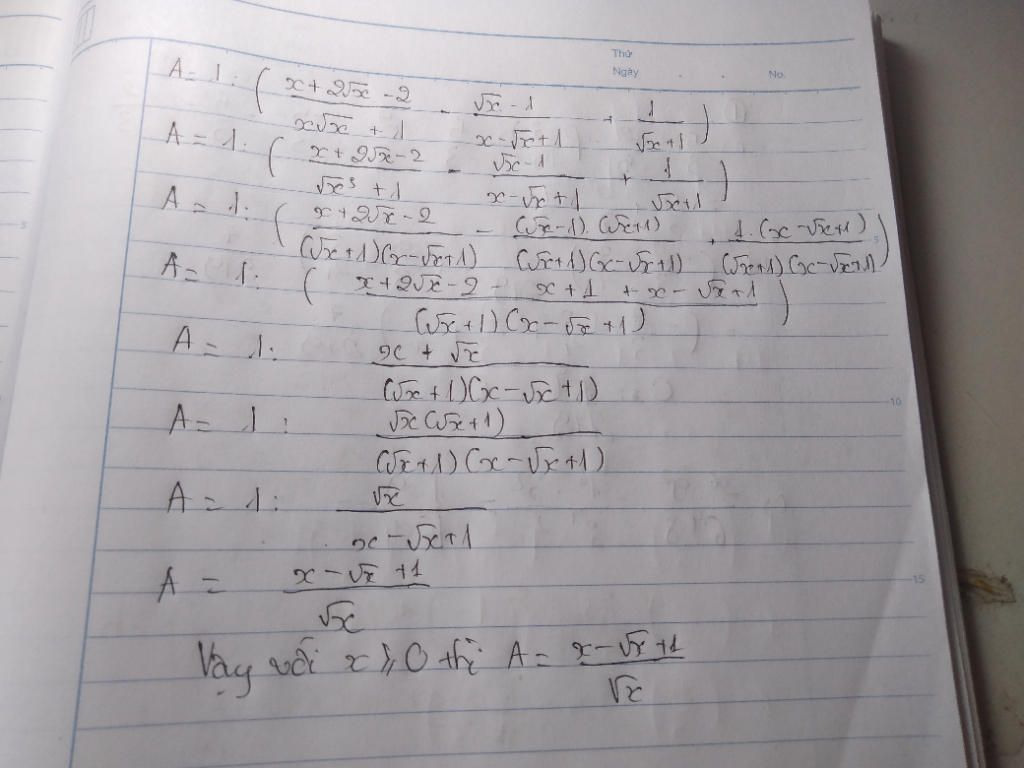 Thứ
Ngày . . No.
A = 1 : ( (x + 2√x - 2)/(x√x + 1) - (√x - 1)/(x - √x + 1) + 1/(√x + 1) )
A = 1 : ( (x + 2√x - 2)/(√x³ + 1) - (√x - 1)/(x - √x + 1) + 1/(√x + 1) )
A = 1 : ( (x + 2√x - 2)/((√x + 1)(x - √x + 1)) - ((√x - 1).(√x + 1))/((√x + 1)(x - √x + 1)) + (1.(x - √x + 1))/((√x + 1)(x - √x + 1)) )
A = 1 : ( (x + 2√x - 2 - x + 1 + x - √x + 1)/((√x + 1)(x - √x + 1)) )
A = 1 : (x + √x)/((√x + 1)(x - √x + 1))
A = 1 : (√x(√x + 1))/((√x + 1)(x - √x + 1))
A = 1 : √x/(x - √x + 1)
A = (x - √x + 1)/√x
Vậy với x ≥ 0 thì A = (x - √x + 1)/√x
5
10
15